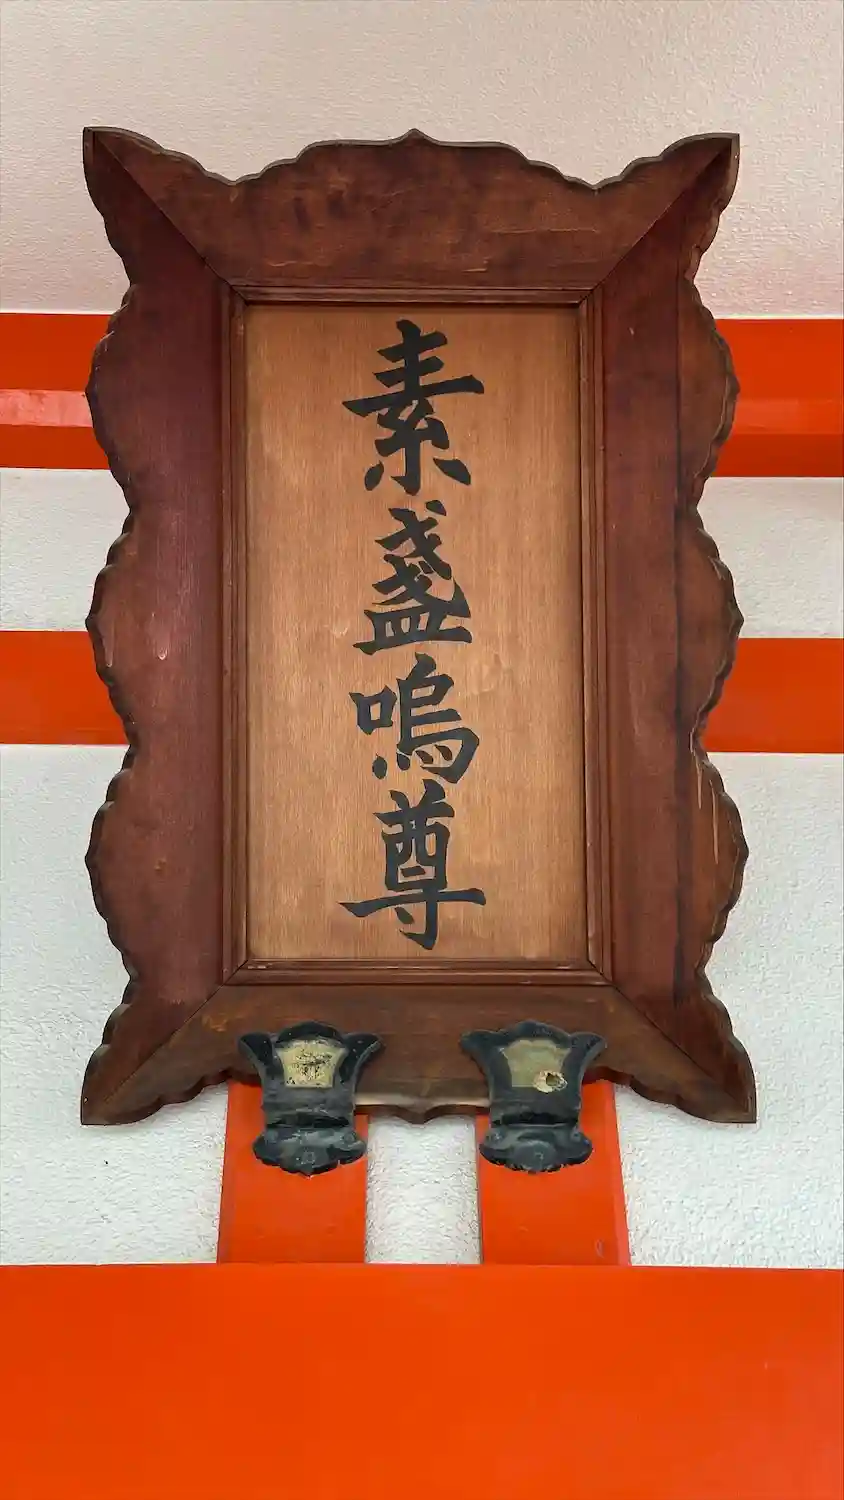 素盞嗚尊